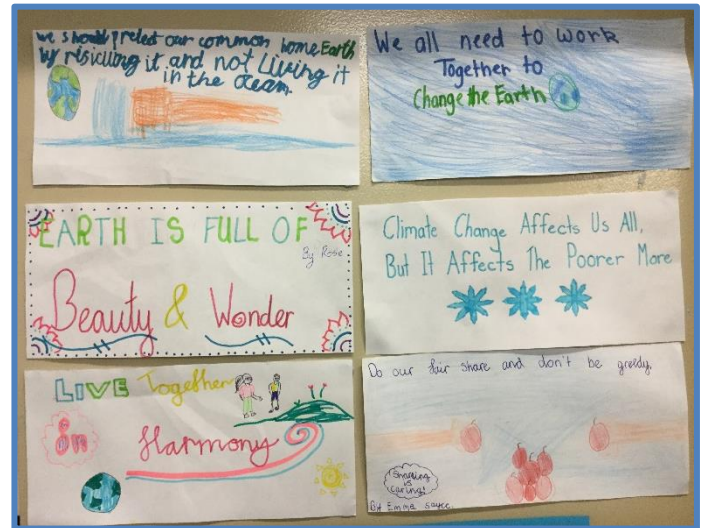 we should preted our common home Earth
by risicuing it and not Living it
in the ocean.
We all need to work
Together to
Change the Earth
EARTH IS FULL OF
By Rose
Beauty & Wonder
Climate Change Affects Us All,
But It Affects The Poorer More
LIVE Together
in Harmony
Do our fair share and don't be greedy.
Sharing
is
caring!
By Emma sayce.